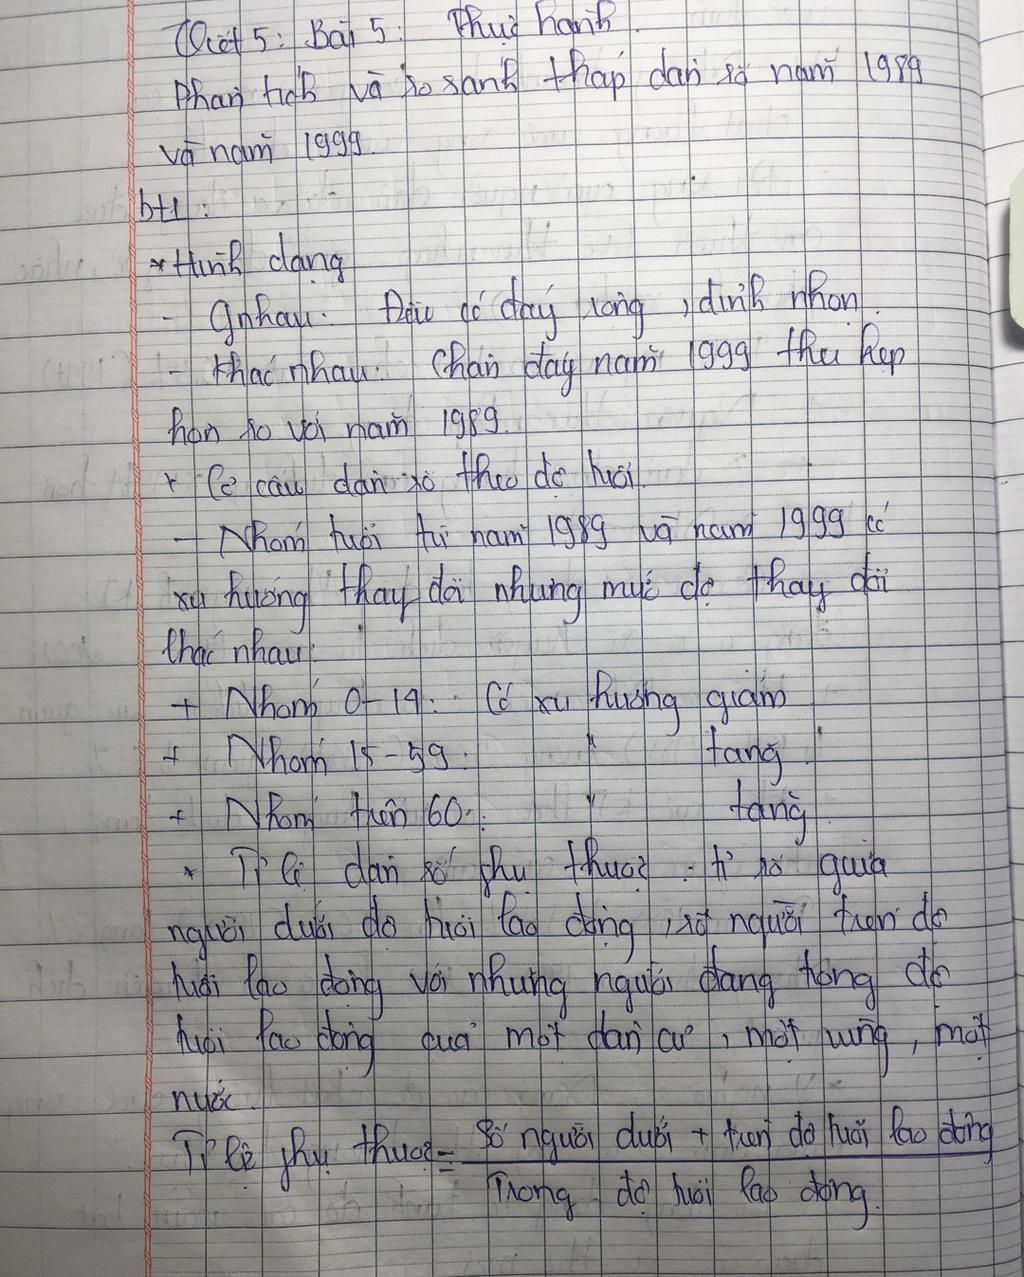 Tiết 5: Bài 5: Thực hành.
Phân tích và so sánh tháp dân số năm 1989
và năm 1999.
bt1:
* Hình dạng
- Gnhau: Đều có đáy rộng, đỉnh nhọn.
- Khác nhau: Chân đáy năm 1999 thu hẹp
hơn so với năm 1989.
+ Cơ cấu dân số theo độ tuổi.
- Nhóm tuổi từ năm 1989 và năm 1999 có
xu hướng thay đổi nhưng mức độ thay đổi
khác nhau:
+ Nhóm 0-14: Có xu hướng giảm
+ Nhóm 15-59: " tăng
+ Nhóm trên 60: " tăng
* Tỉ lệ dân số phụ thuộc: tỉ số giữa
người dưới độ tuổi lao động, số người trên độ
tuổi lao động với những người đang trong độ
tuổi lao động của một dân cư, một vùng, một
nước.
Tỉ lệ phụ thuộc = Số người dưới + trên độ tuổi lao động
Trong độ tuổi lao động.